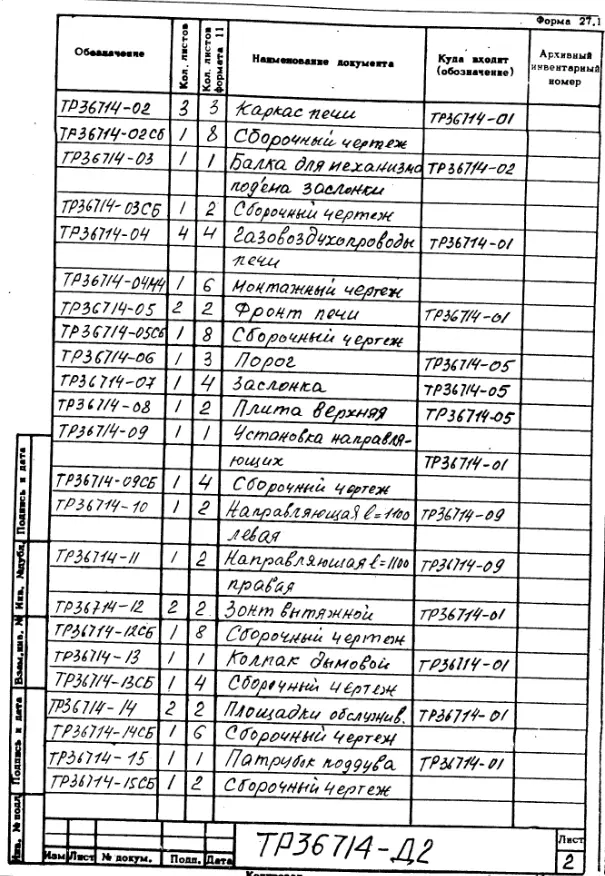 Форма 27.1
Обозначение Кол. листов Кол. листов формата 11 Наименование документа Куда входит (обозначение) Архивный инвентарный номер
ТР36714-02 3 3 Каркас печи ТР36714-01
ТР36714-02СБ 1 8 Сборочный чертеж
ТР36714-03 1 1 Балка для механизма ТР36714-02
под'ема заслонки
ТР36714-03СБ 1 2 Сборочный чертеж
ТР36714-04 4 4 Газовоздухопроводы ТР36714-01
печи
ТР36714-04МЧ 1 6 Монтажный чертеж
ТР36714-05 2 2 Фронт печи ТР36714-01
ТР36714-05СБ 1 8 Сборочный чертеж
ТР36714-06 1 3 Порог ТР36714-05
ТР36714-07 1 4 Заслонка ТР36714-05
ТР36714-08 1 2 Плита верхняя ТР36714-05
ТР36714-09 1 1 Установка направля-
ющих ТР36714-01
ТР36714-09СБ 1 4 Сборочный чертеж
ТР36714-10 1 2 Направляющая ℓ=1100 ТР36714-09
левая
ТР36714-11 1 2 Направляющая ℓ=1100 ТР36714-09
правая
ТР36714-12 2 2 Зонт вытяжной ТР36714-01
ТР36714-12СБ 1 8 Сборочный чертеж
ТР36714-13 1 1 Колпак дымовой ТР36714-01
ТР36714-13СБ 1 4 Сборочный чертеж
ТР36714-14 2 2 Площадки обслужив. ТР36714-01
ТР36714-14СБ 1 6 Сборочный чертеж
ТР36714-15 1 1 Патрубок поддува ТР36714-01
ТР36714-15СБ 1 2 Сборочный чертеж
Инв. № подл. Подпись и дата Взам. инв. № Инв. № дубл. Подпись и дата
Изм Лист № докум. Подп. Дата
ТР36714-Д2
Лист
2